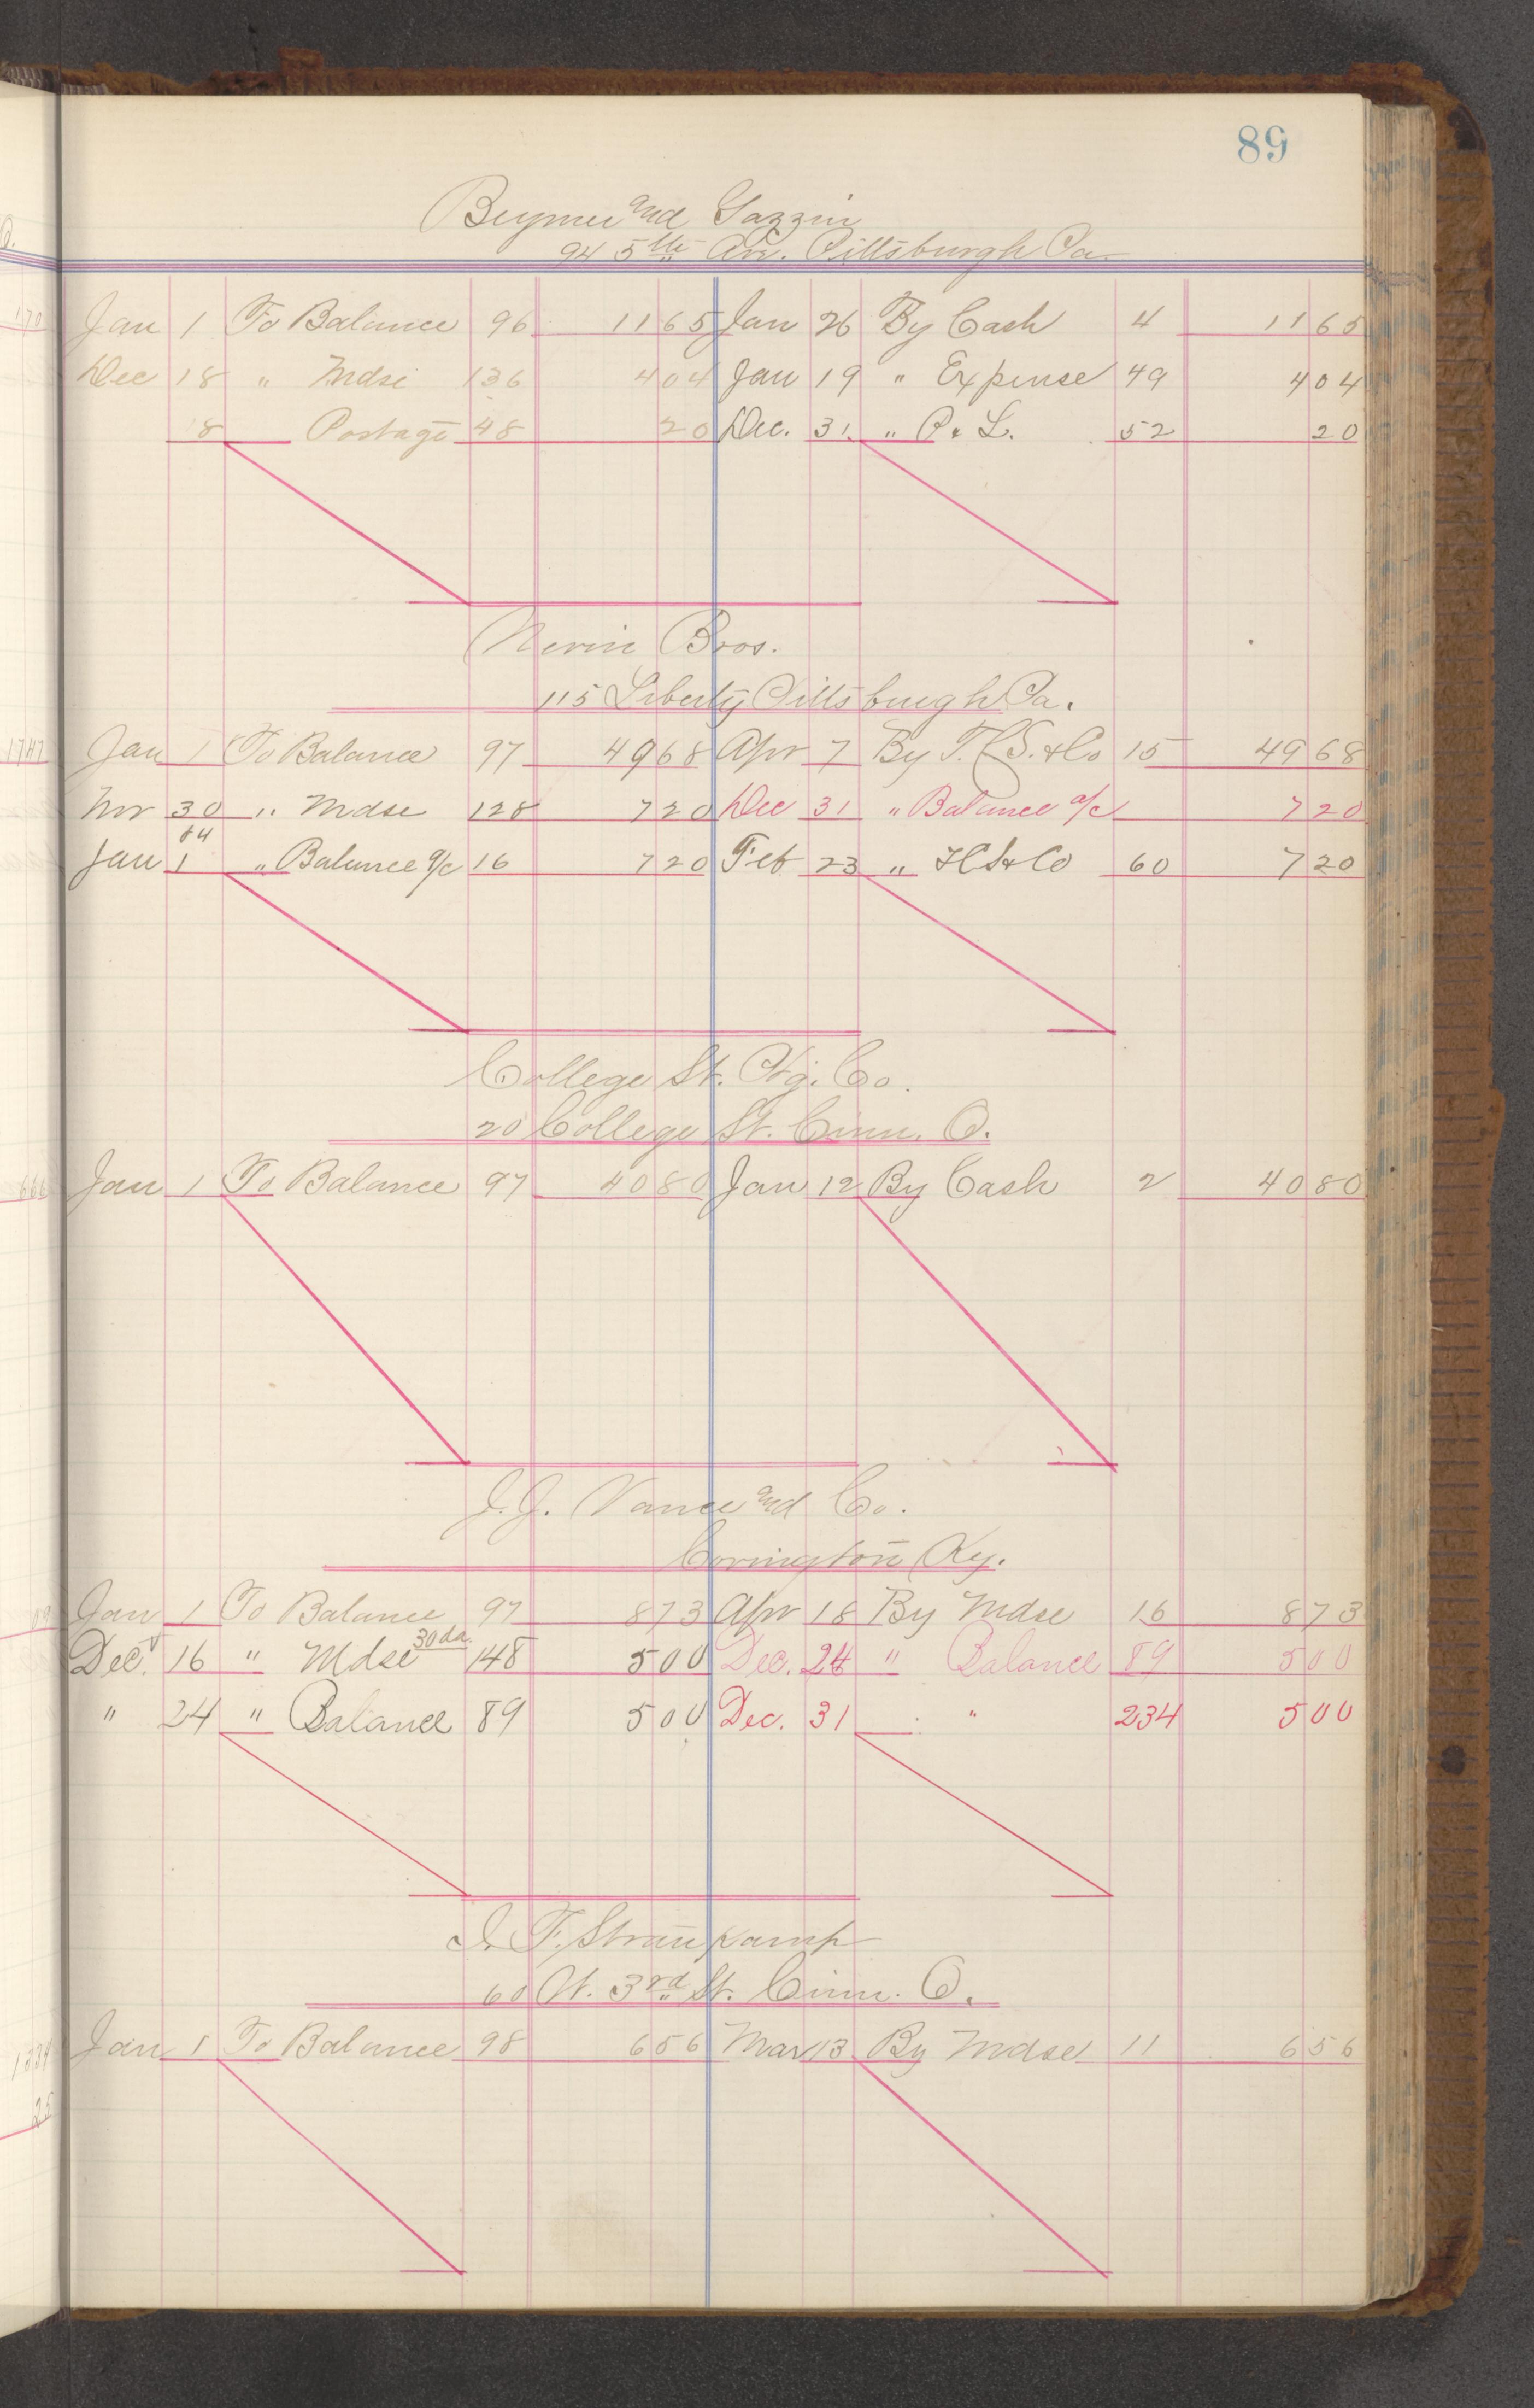 89
Beymer and Gazzin
94 5th Av. Pittsburgh Pa.
Jan 1 To Balance 96 1165 Jan 26 By Cash 4 1165
Dec 18 " Mdse 136 404 Jan 19 " Expense 49 404
18 Postage 48 20 Dec. 31 " P & L. 52 20
Nevin Bros.
115 Liberty Pittsburgh Pa.
Jan 1 To Balance 97 4968 Apr 7 By T. S. & Co 15 4968
Nov 30 " Mdse 128 720 Dec 31 " Balance a/c 720
84
Jan 1 " Balance a/c 16 720 Feb 23 " H S & Co 60 720
College St. Co.
20 College St. Cinn. O.
Jan 1 To Balance 97 4080 Jan 12 By Cash 2 4080
J. J. Vance and Co.
Covington Ky.
Jan 1 To Balance 97 873 Apr 18 By Mdse 16 873
Dec. 16 " Mdse 30 da. 148 500 Dec. 24 " Balance 89 500
" 24 " Balance 89 500 Dec. 31 " 234 500
F. Straukamp
60 W. 3rd St. Cinn. O.
Jan 1 To Balance 98 656 Mar 13 By Mdse 11 656